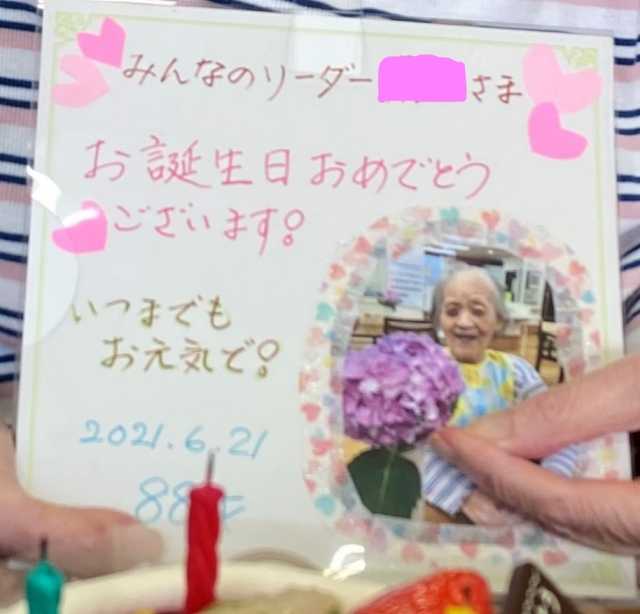 みんなのリーダー さま
お誕生日おめでとう
ございます!
いつまでも
お元気で!
2021.6.21
88才